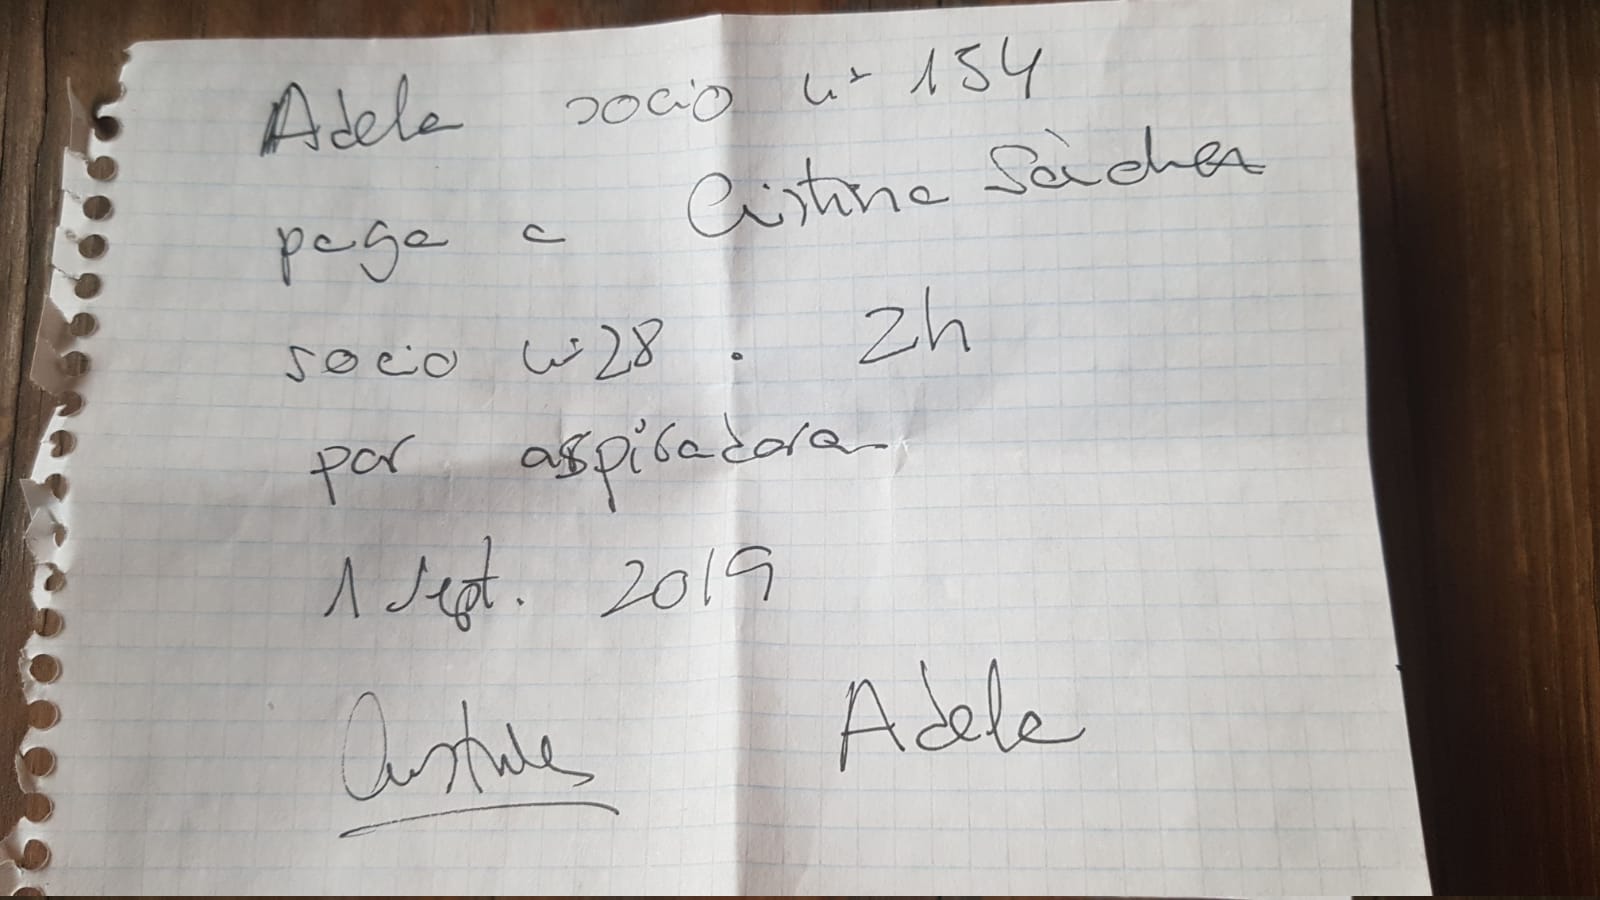 Adela socio nº 154
paga a Cristina Sánchez
socio nº 28 . 2h
por aspiradora
1 sept. 2019
Cristina Adela